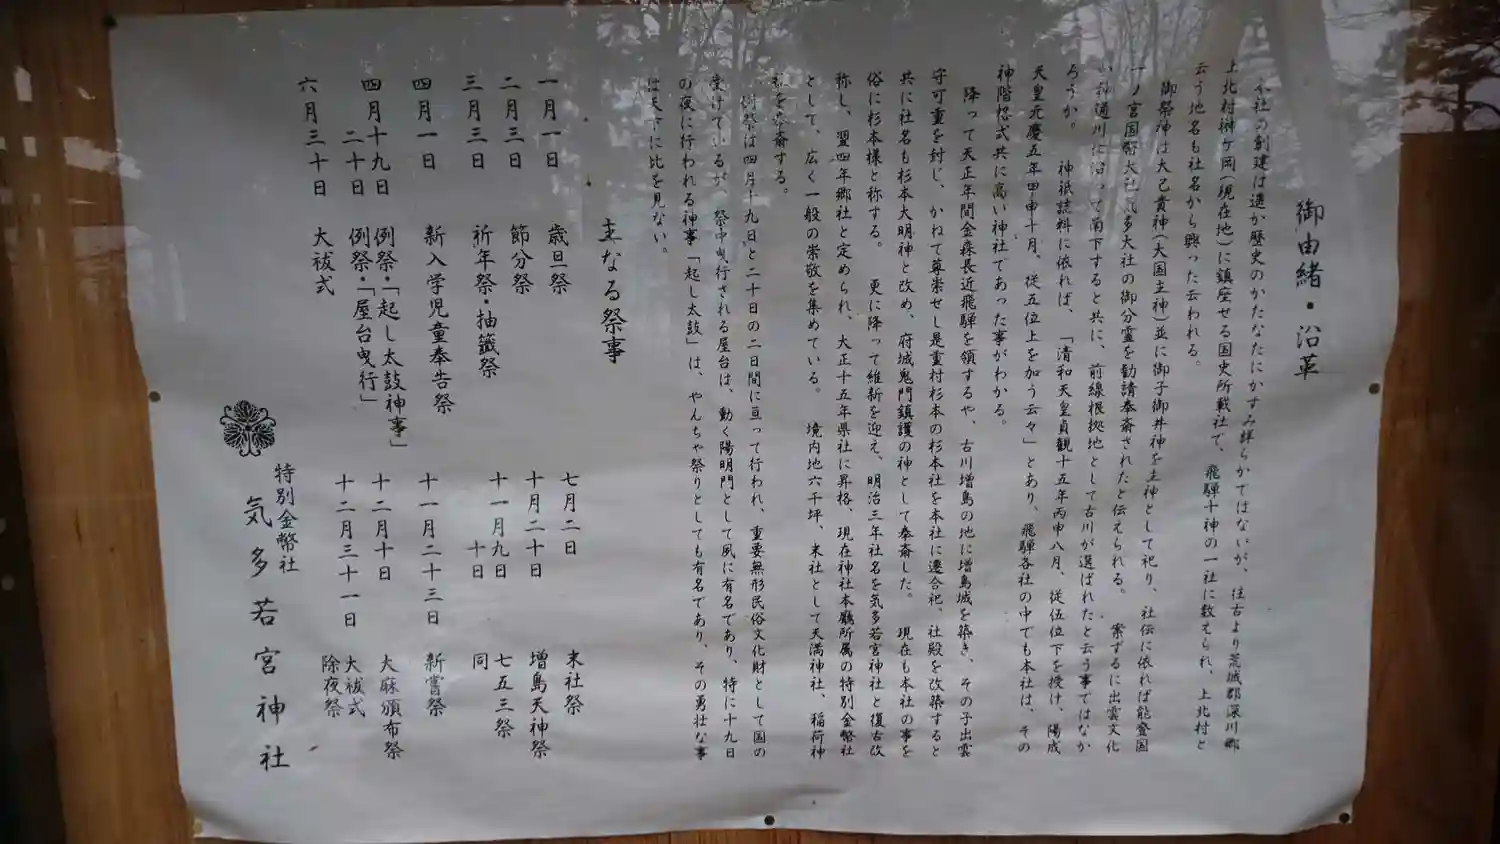 御由緒・沿革
本社の創建は遥か歴史のかたなたにかすみ詳らかてはないが、往古より荒城郡深川郷
上北村榊ケ岡(現在地)に鎮座せる国史所載社で、飛騨十神の一社に数えられ、上北村と
云う地名も社名から興った云われる。
御祭神は大己貴神(大国主神)並に御子御井神を主神として祀り、社伝に依れば能登国
一ノ宮国幣大社気多大社の御分霊を勧請奉斎されたと伝えられる。 案ずるに出雲文化
い神通川に沿って南下すると共に、前線根拠地として古川が選ばれたと云う事ではなか
ろうか。 神祇誌料に依れば、「清和天皇貞観十五年丙申八月、従伍位下を授け、陽成
天皇元慶五年甲申十月、従五位上を加う云々」とあり、飛騨各社の中でも本社は、その
神階格式共に高い神社てあった事がわかる。
降って天正年間金森長近飛騨を領するや、古川増島の地に増島城を築き、その子出雲
守可重を封じ、かねて尊崇せし是重村杉本の杉本社を本社に遷合祀、社殿を改築すると
共に社名も杉本大明神と改め、府城鬼門鎮護の神として奉斎した。 現在も本社の事を
俗に杉本様と称する。 更に降って維新を迎え、明治三年社名を気多若宮神社と復古改
称し、翌四年郷社と定められ、大正十五年県社に昇格、現在神社本廳所属の特別金幣社
として、広く一般の崇敬を集めている。 境内地六千坪、末社として天満神社、稲荷神
社を奉斎する。
例祭は四月十九日と二十日の二日間に亘って行われ、重要無形民俗文化財として国の
受けているが、祭中曳行される屋台は、動く陽明門として夙に有名であり、特に十九日
の夜に行われる神事「起し太鼓」は、やんちゃ祭りとしても有名であり、その勇壮な事
は天下に比を見ない。
主なる祭事
一月一日 歳旦祭
二月三日 節分祭
三月三日 祈年祭・抽籤祭
四月一日 新入学児童奉告祭
四月十九日 例祭・「起し太鼓神事」
二十日 例祭・「屋台曳行」
六月三十日 大祓式
七月二日 末社祭
十月二十日 増島天神祭
十一月九日 七五三祭
十日 同
十一月二十三日 新嘗祭
十二月十日 大麻頒布祭
十二月三十一日 大祓式
除夜祭
特別金幣社
気多若宮神社